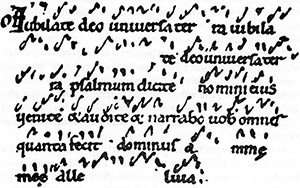 OF Iubilate deo uniuersa ter ra iubila
te deo uniuersa ter
ra psalmum dicite nomini eius
uenite & audite & narrabo uob omnes
quanta fecit dominus a nime
mee alle luia.